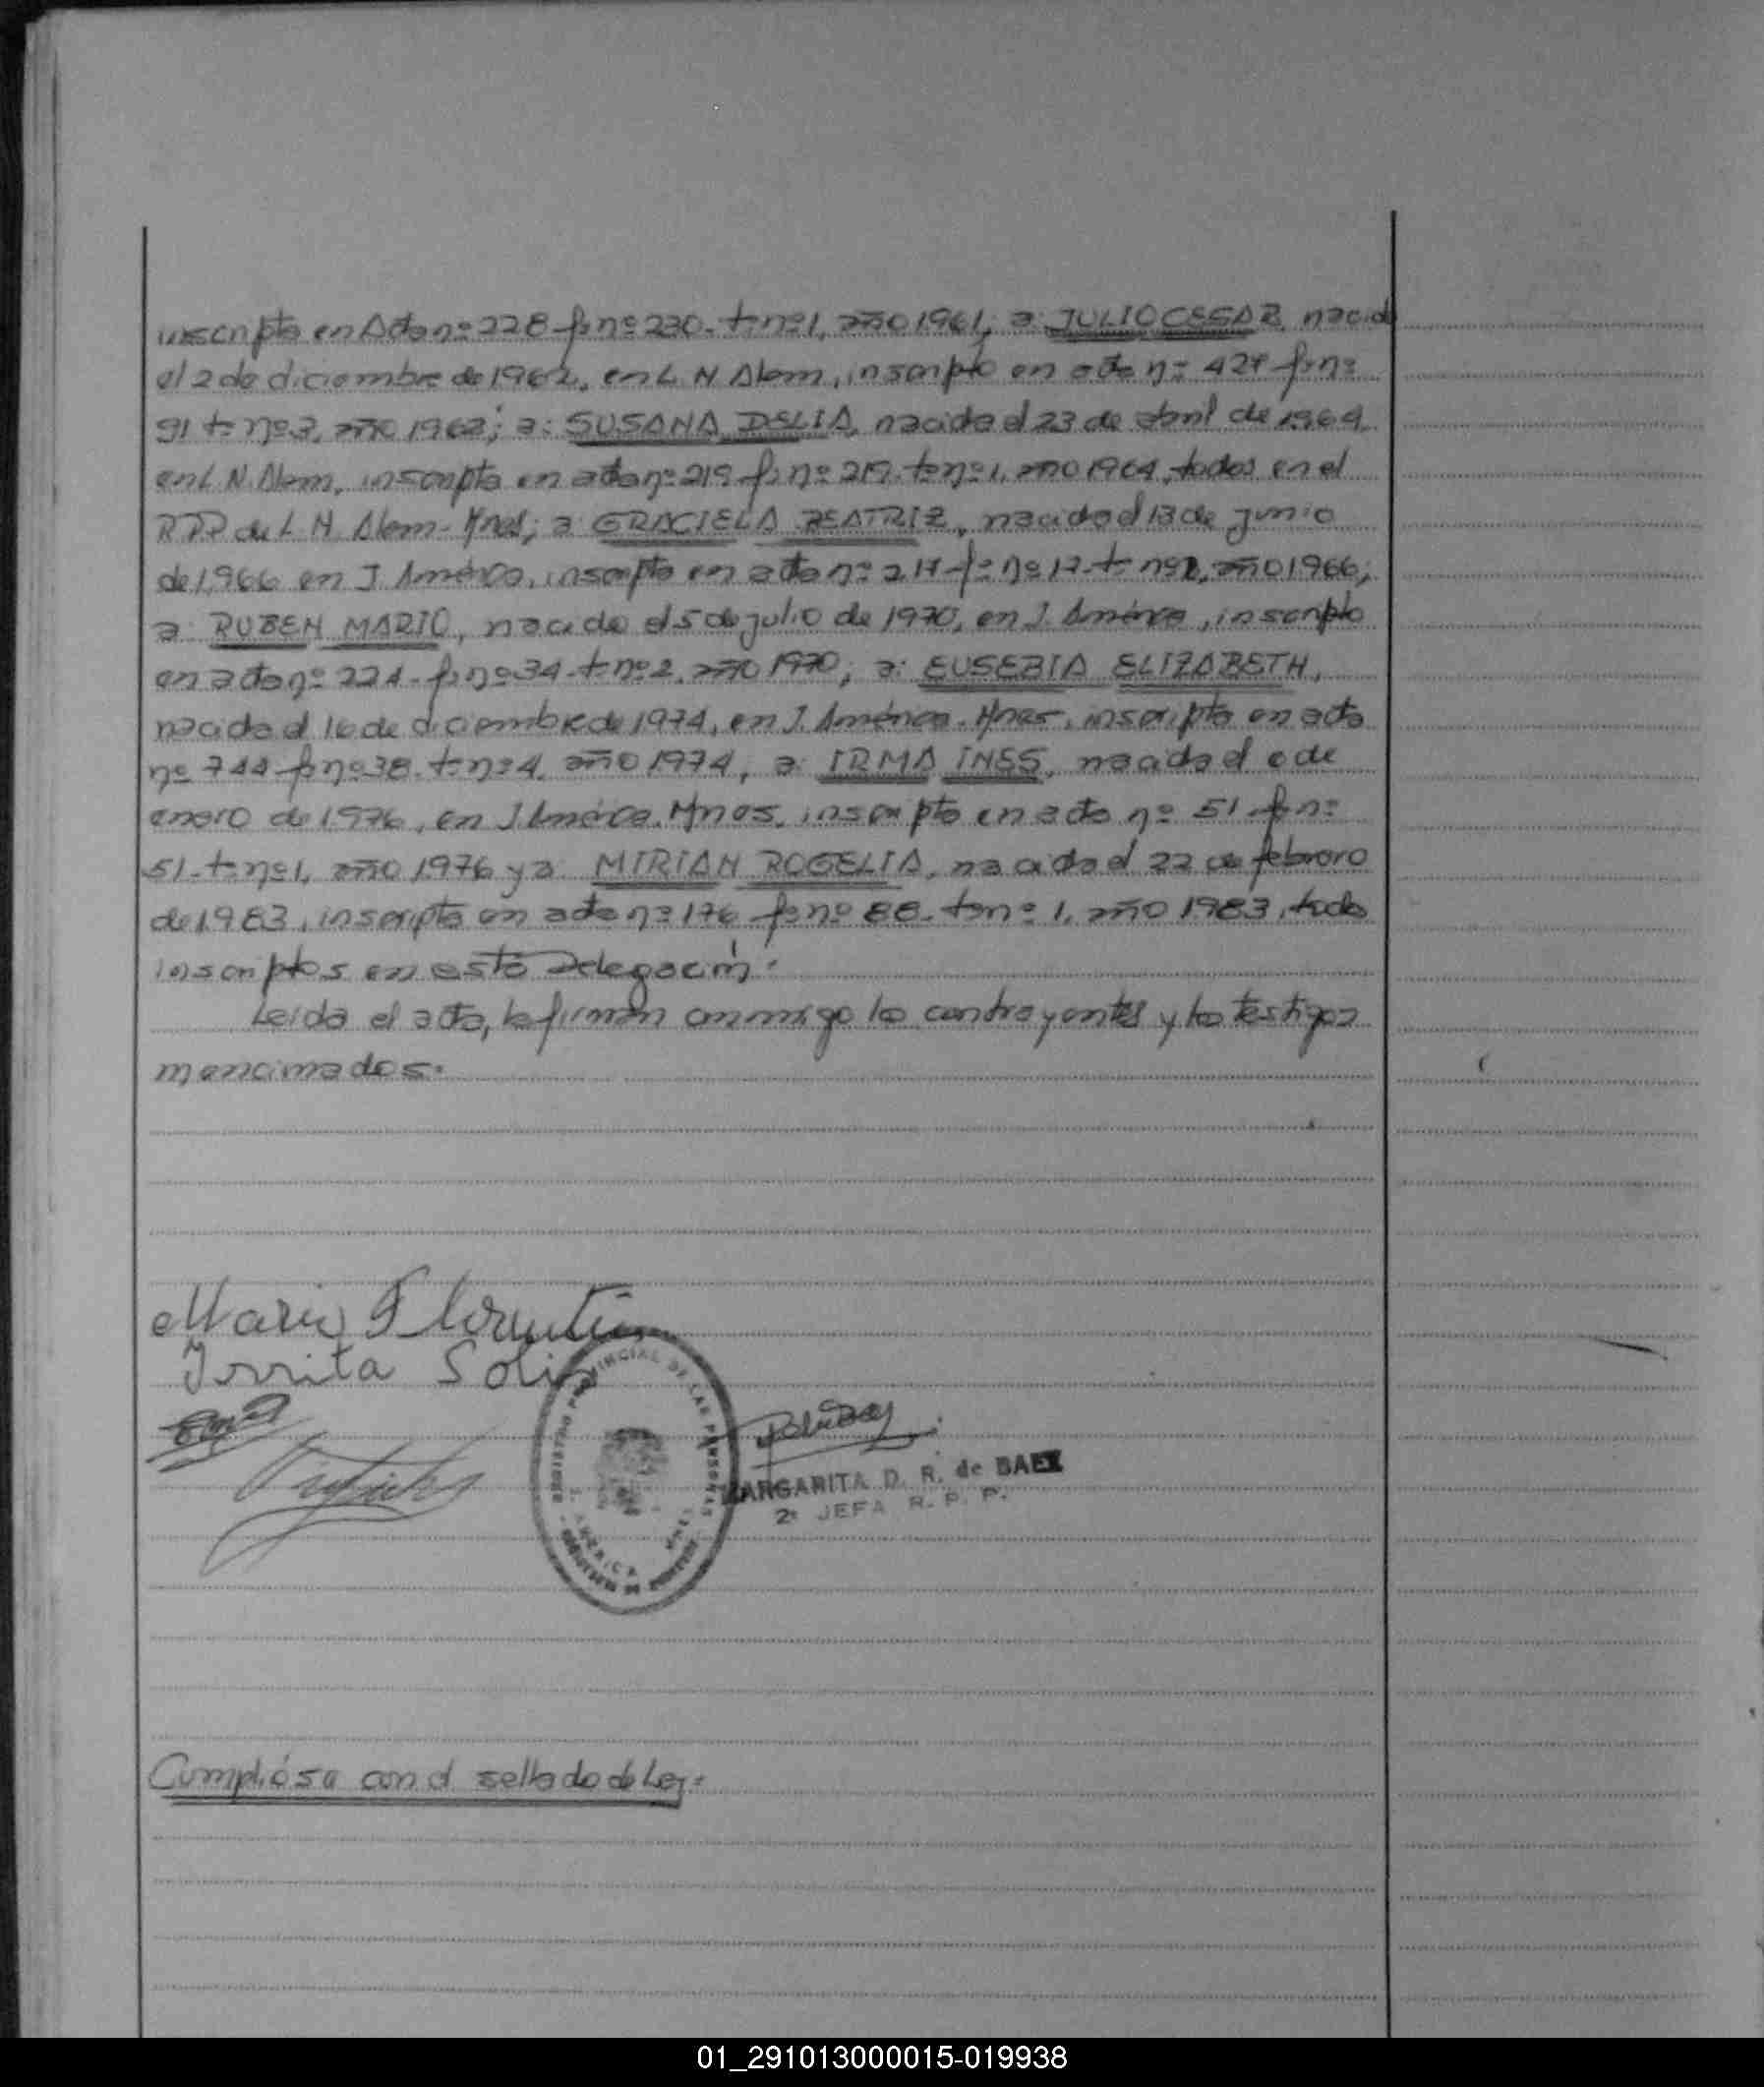 inscripta en Acta nº 228 fº nº 230. tº nº 1, año 1961; a: JULIO CESAR, nacido
el 2 de diciembre de 1962, en L N Alem, inscripto en acta nº 427 fº nº
91 tº nº 3, año 1962; a: SUSANA DELIA, nacida el 23 de abril de 1964,
en L N. Alem, inscripta en acta nº 219 fº nº 219. tº nº 1, año 1964, todos en el
RPP de L N. Alem- Mnes; a GRACIELA BEATRIZ, nacida el 13 de junio
de 1966 en J. América, inscripta en acta nº 217 fº nº 17 tº nº 2, año 1966;
a RUBEN MARIO, nacido el 5 de julio de 1970, en J. América, inscripto
en acta nº 224- fº nº 34- tº nº 2, año 1970; a: EUSEBIA ELIZABETH,
nacida el 16 de diciembre de 1974, en J. América. Mnes, inscripta en acta
nº 744 fº nº 38. tº nº 4, año 1974, a: IRMA INES, nacida el 6 de
enero de 1976, en J. América. Mnes, inscripta en acta nº 51 fº nº
51- tº nº 1, año 1976 y a MIRIAN ROGELIA, nacida el 22 de febrero
de 1983, inscripta en acta nº 176 fº nº 88- tº nº 1, año 1983, todos
inscriptos en esta Delegación.
Leída el acta, la firman conmigo los contrayentes y los testigos
mencionados.
Mario Florentin
Irrita Solis
REGISTRO PROVINCIAL DE LAS PERSONAS
J. AMERICA MNES
MARGARITA D. R. de BAEZ
2ª JEFA R. P. P.
Cumplióse con el sellado de Ley.
01_291013000015-019938